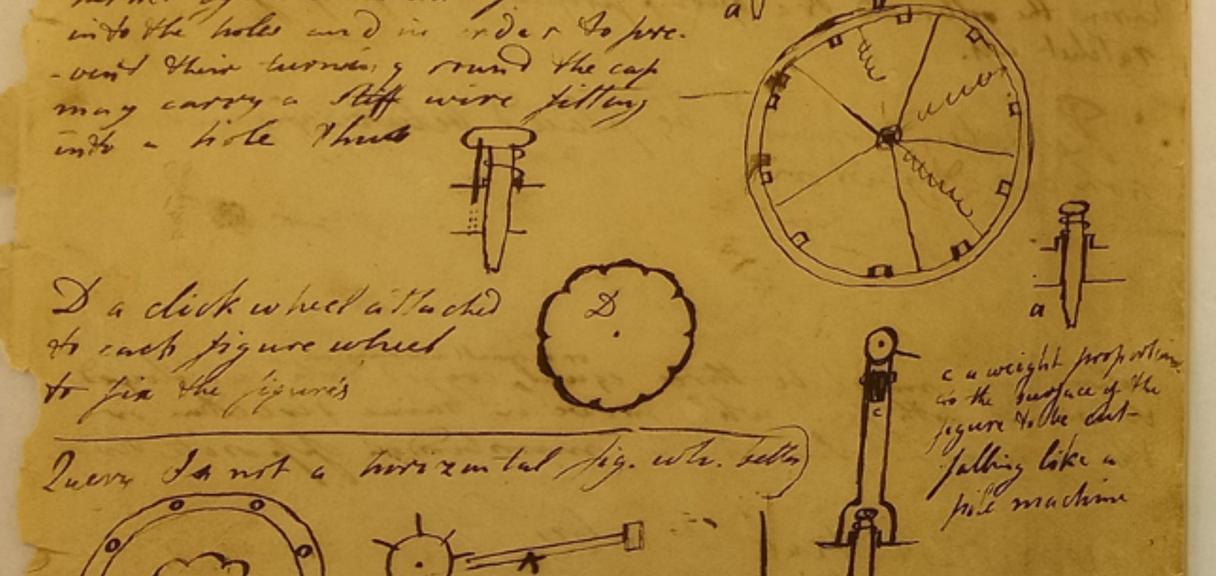 into the holes and in order to pre-
-vent their turning round the cap
may carry a stiff wire fitting
into a hole thus
a
D a click wheel attached
to each figure wheel
to fix the figures
D
a
c
c a weight proportion
to the surface of the
figure to be cut-
falling like a
pile machine
Query Is not a horizontal fig. wh. better